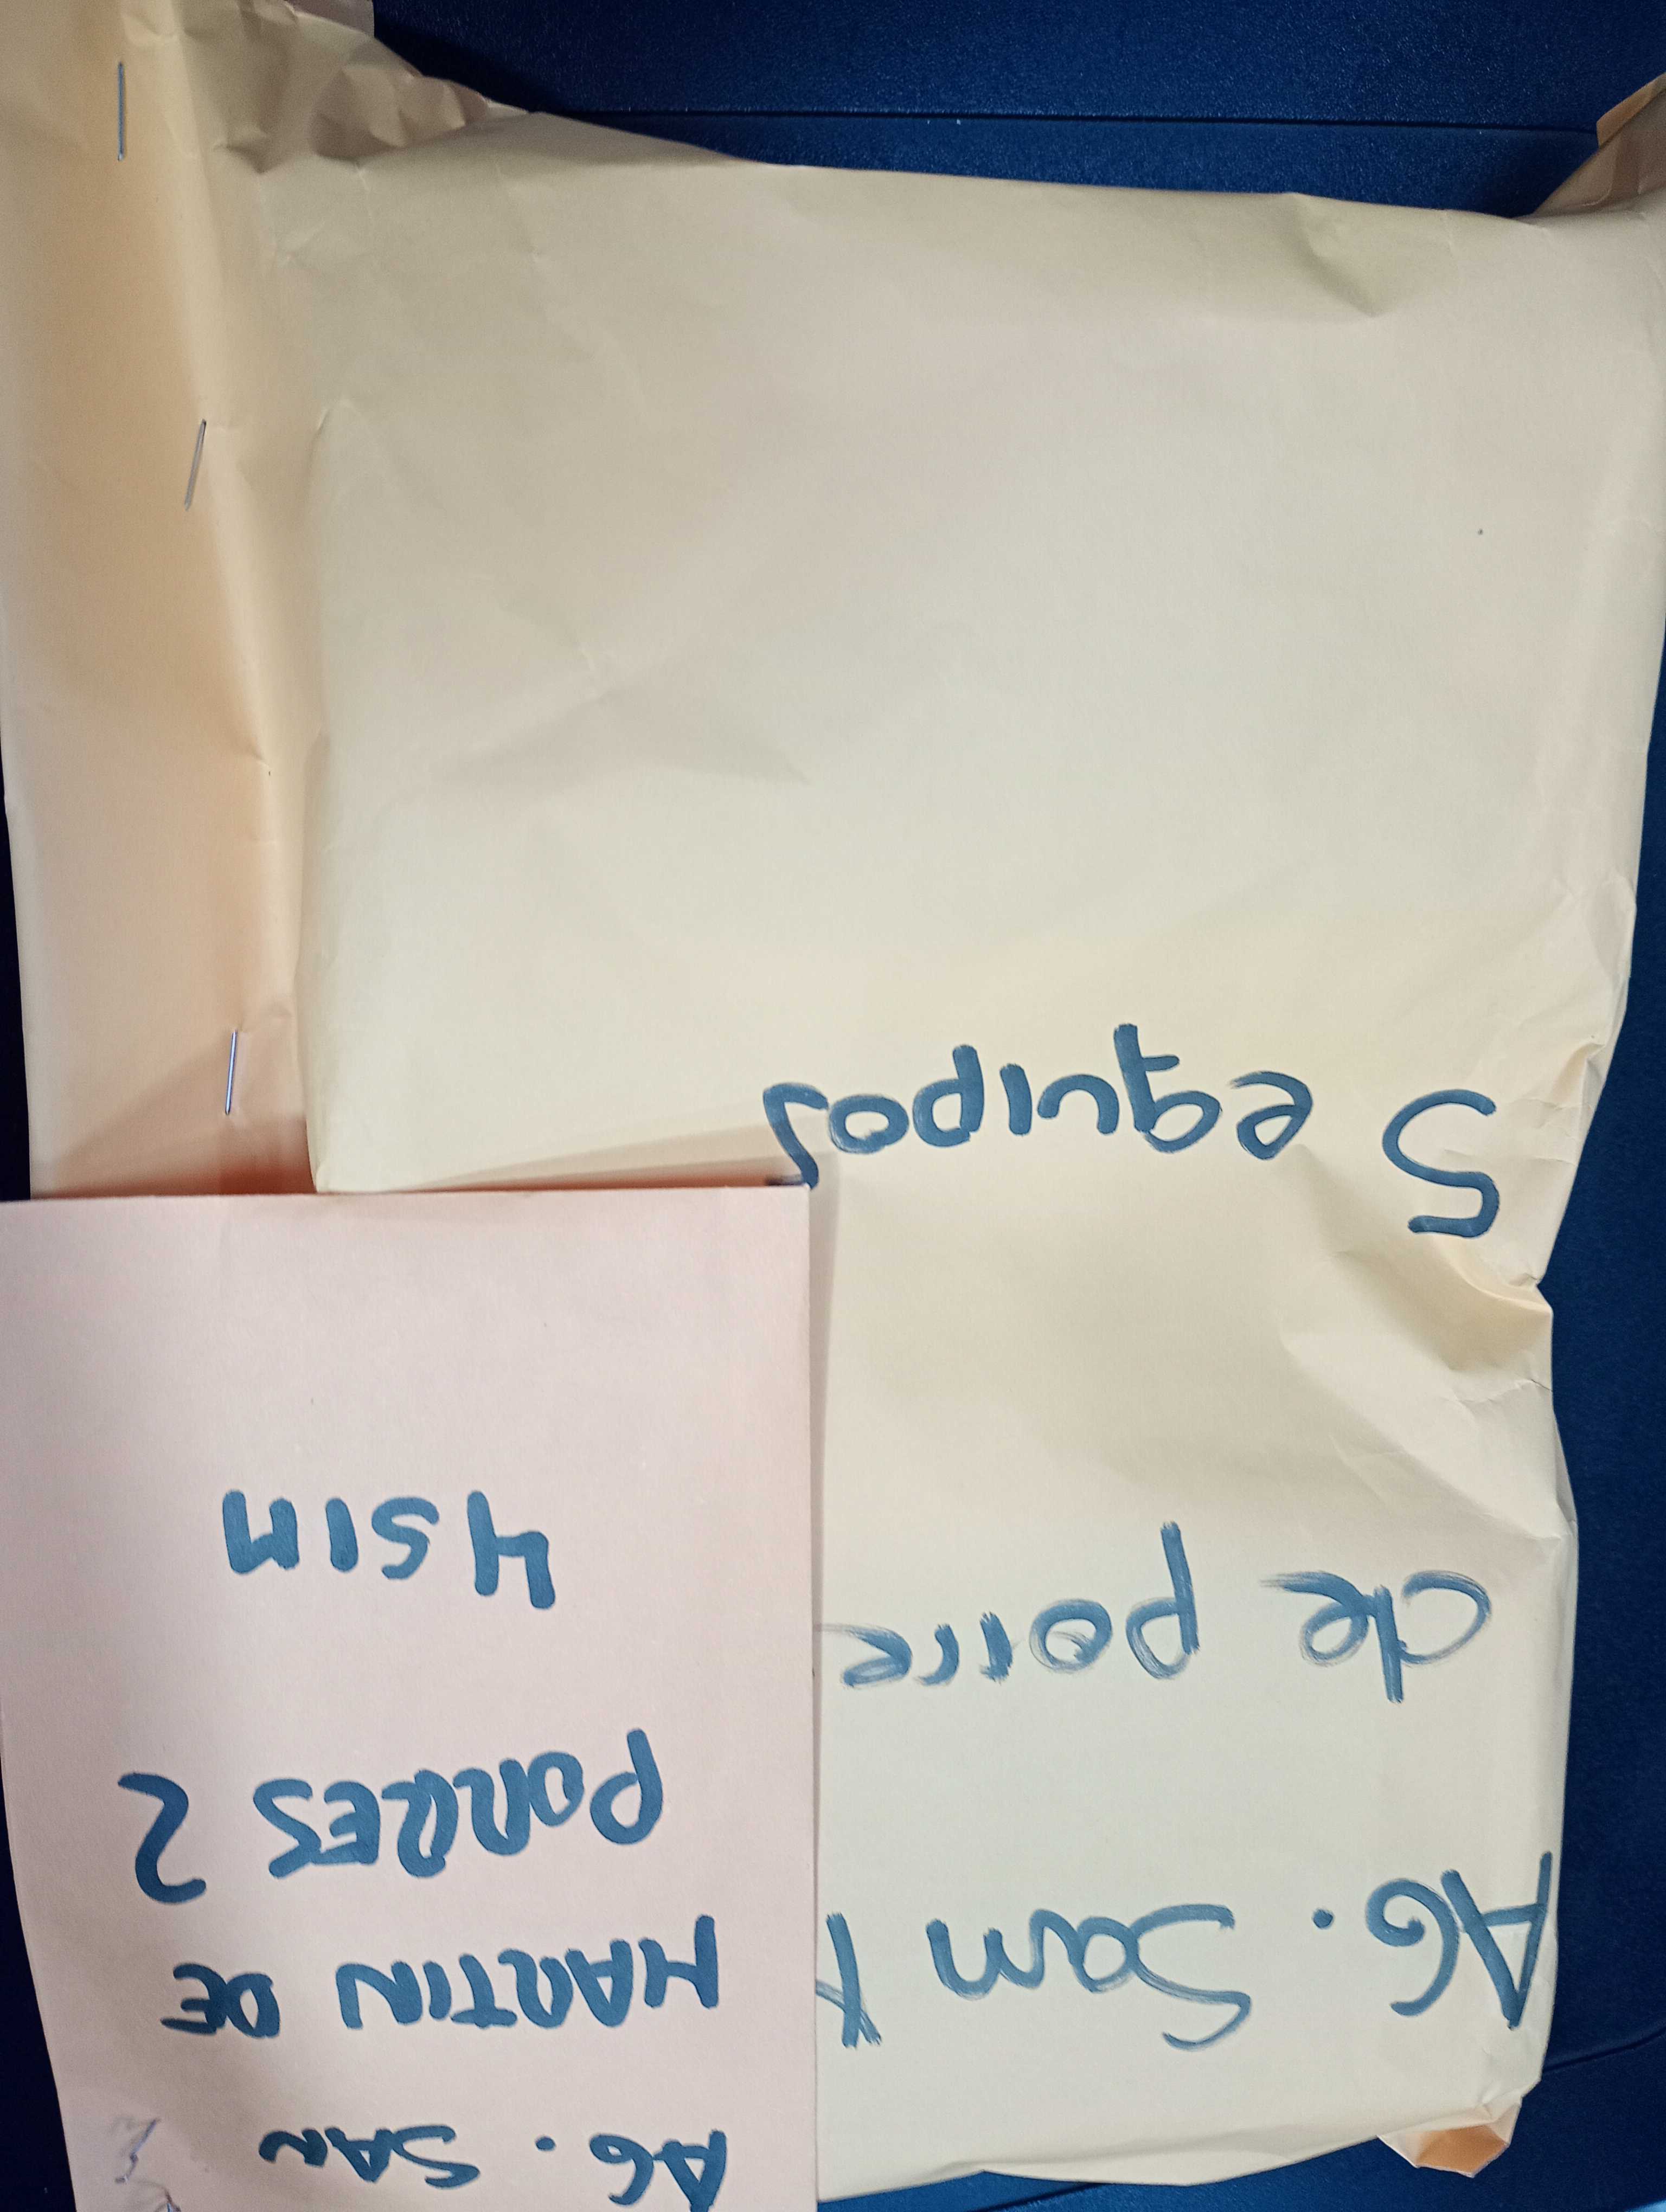 AG. San M
de porre
5 equipos
AG. SAN
MARTIN DE
PORRES 2
4 SIM